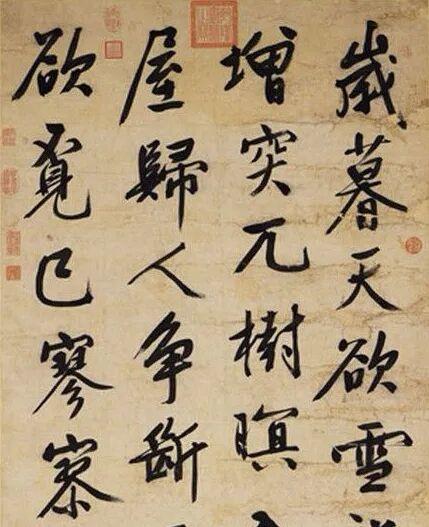 歲暮天欲雪
增突兀樹暝
屋歸人争斷
欲覔已寥